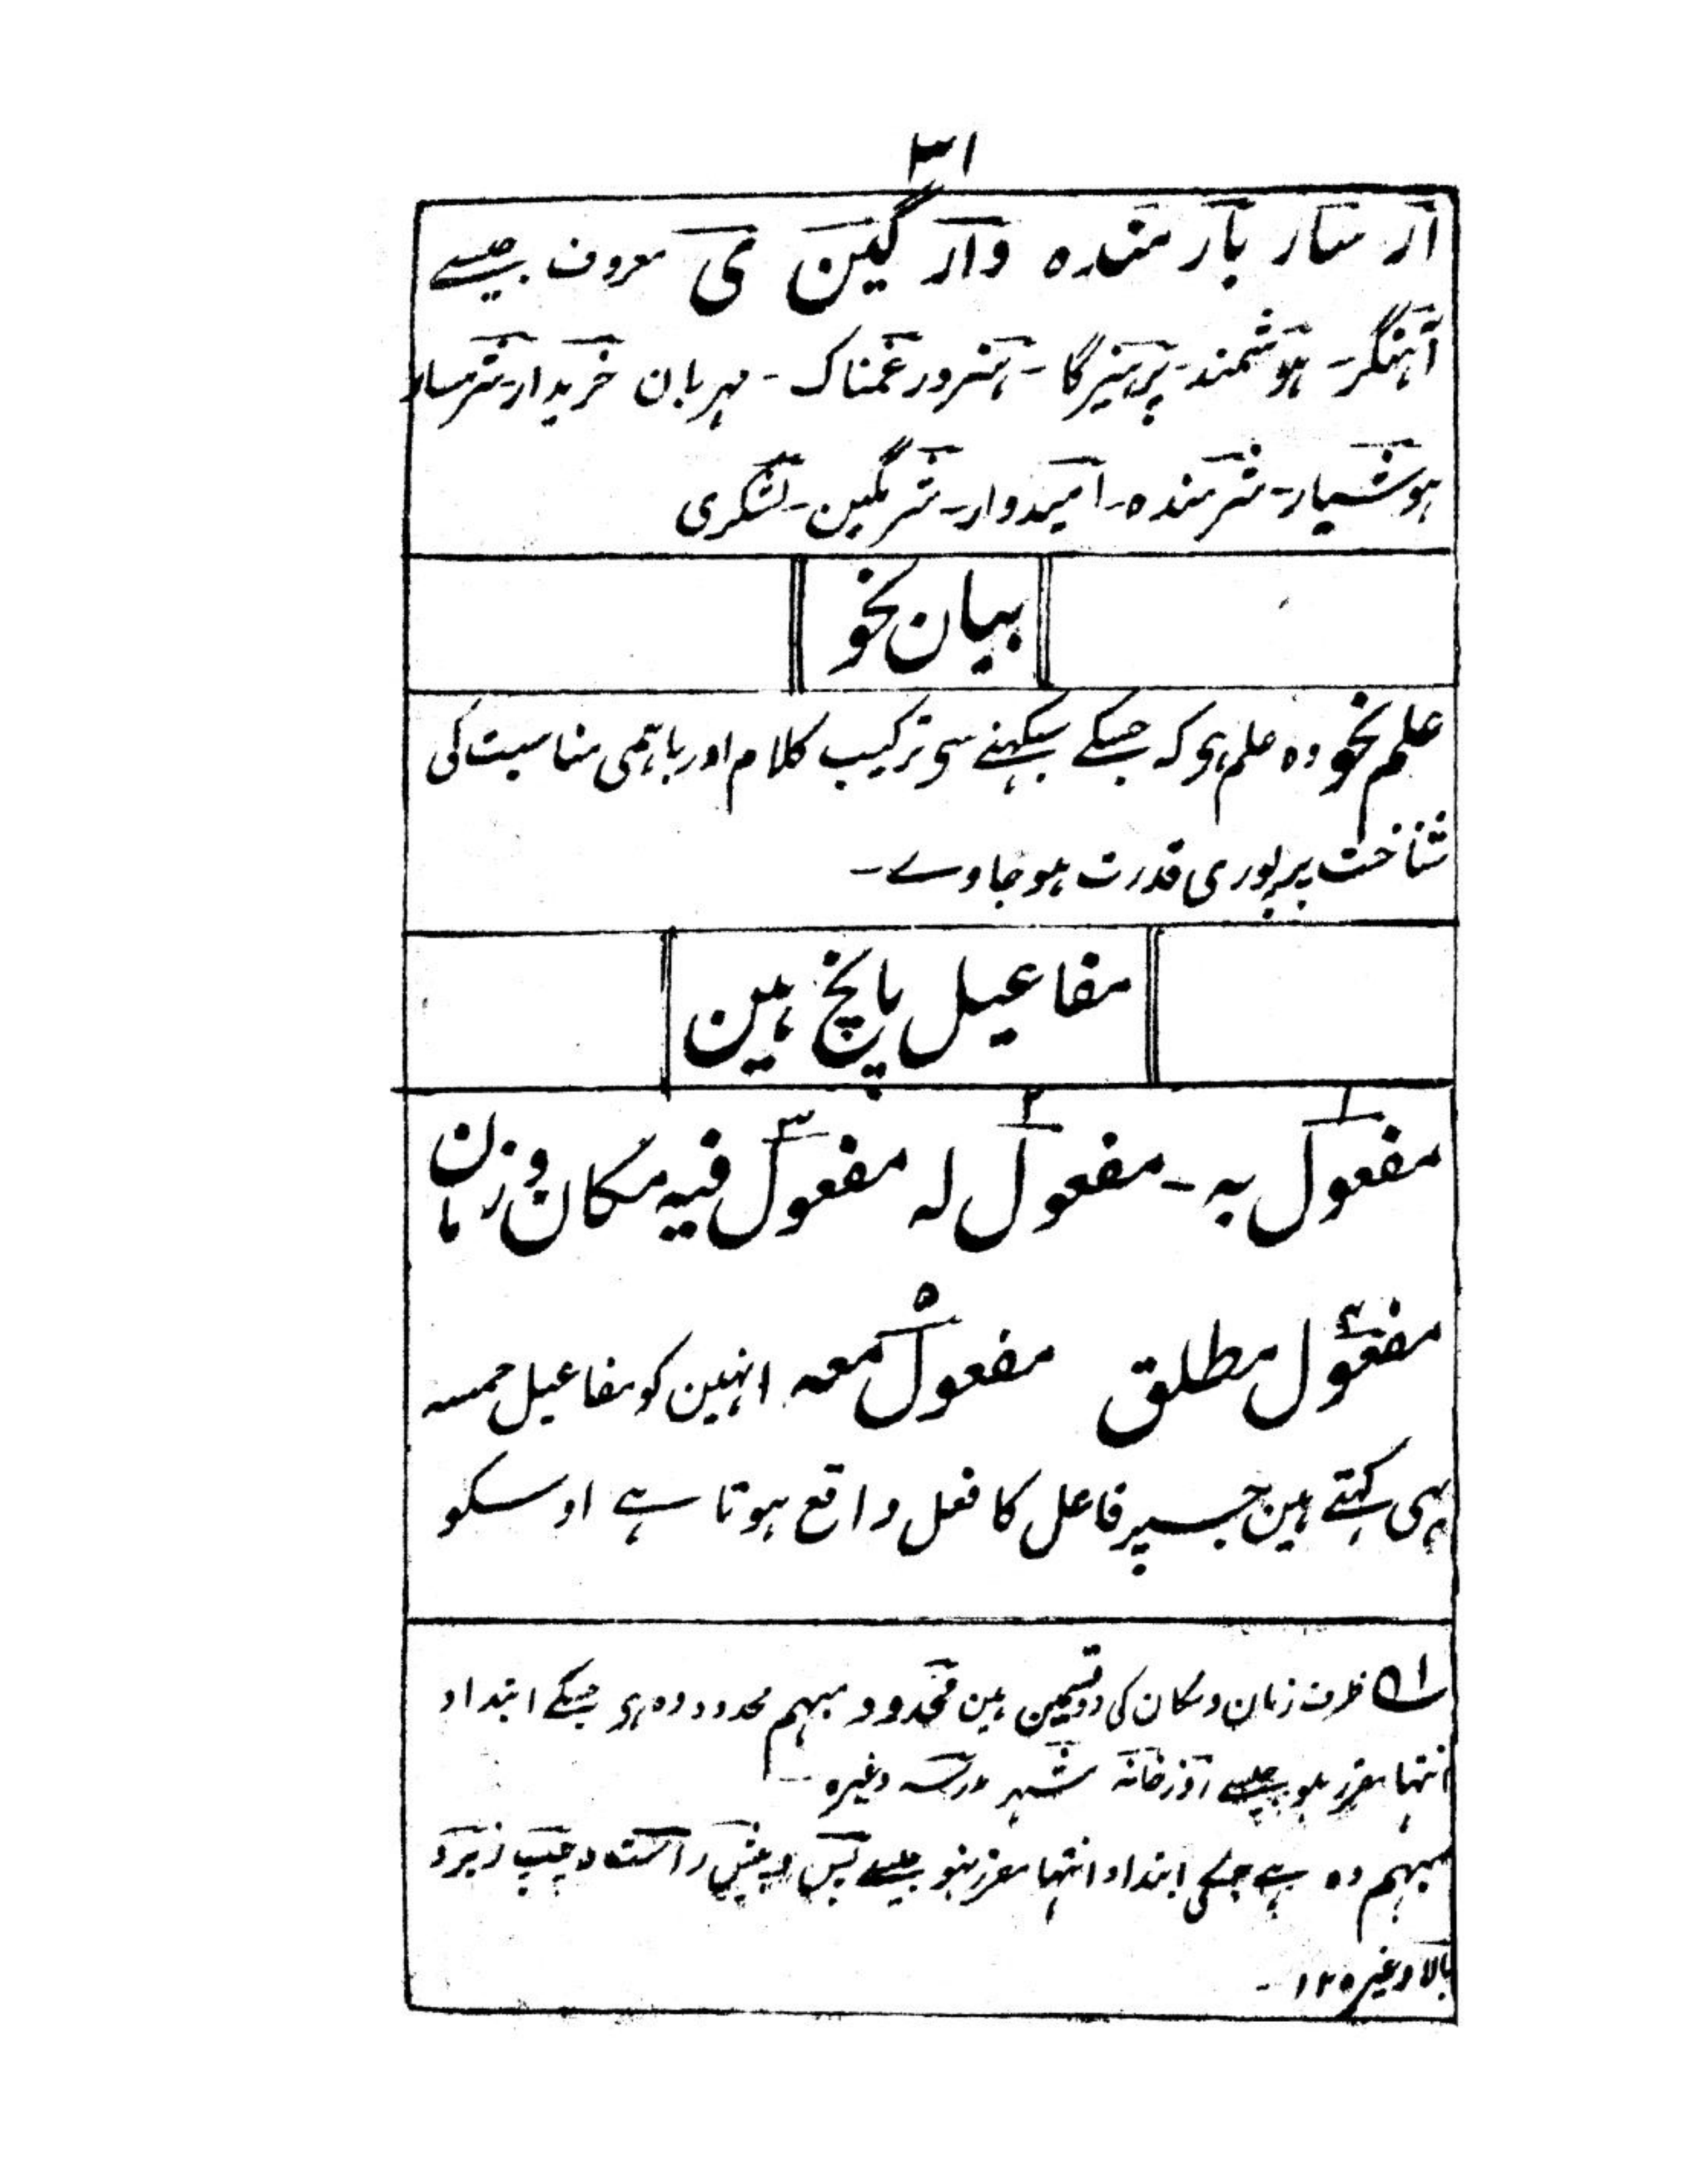 ۳۱
ار سار بار مندہ وار گین ی معروف جیسے
آہنگر۔ ہوشمند۔ پرہیزگا۔ ہنرور غمناک۔ مہربان خریدار۔ شرمسار
ہوشیار۔ شرمندہ۔ امیدوار۔ شرمگین۔ لشکری
بیان نحو
علم نحو وہ علم ہی کہ جسکے سیکہنے سی ترکیب کلام اور باہمی مناسبت کی
شناخت پر پوری قدرت ہو جاوے۔
مفاعیل پانچ ہین
۱ ۲ ۳
مفعول بہ۔ مفعول لہ مفعول فیہ مکان و زمان
۴ ۵
مفعول مطلق مفعول معہ انہین کو مفاعیل خمسہ
بہی کہتے ہین جسپر فاعل کا فعل واقع ہوتا ہے اوسکو
۱ ظرف زمان و مکان کی دو قسمین ہین محدود و مبہم محدود وہ ہی جسکے ابتدا و
انتہا مقرر ہو جیسے روز خانہ شہر مدرسہ وغیرہ۔
مبہم وہ ہے جسکی ابتدا و انتہا مقرر نہو جیسے پس و پیش راست و چپ زیر و
بالا وغیرہ ۱۲۔